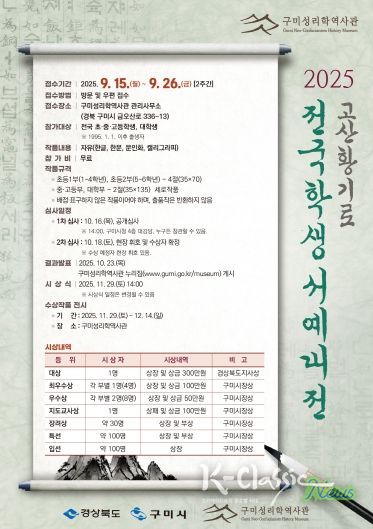 구미성리학역사관
Gumi Neo-Confucianism History Museum
2025
고산황기로
전국학생서예대전
접수기간 | 2025. 9. 15.(월) ~ 9. 26.(금) [2주간]
접수방법 | 방문 및 우편 접수
접수장소 | 구미성리학역사관 관리사무소
(경북 구미시 금오산로 336-13)
참가대상 | 전국 초·중·고등학생, 대학생
※ 1995. 1. 1. 이후 출생자
작품내용 | 자유(한글, 한문, 문인화, 캘리그라피)
참 가 비 | 무료
작품규격
◦ 초등1부(1~4학년), 초등2부(5~6학년) - 4절(35×70)
◦ 중·고등부, 대학부 - 2절(35×135) 세로작품
◦ 배접 표구하지 않은 작품이어야 하며, 출품작은 반환하지 않음
심사일정
◦ 1차 심사 : 10. 16.(목), 공개심사
※ 14:00, 구미시청 4층 대강당, 누구든 참관할 수 있음.
◦ 2차 심사 : 10. 18.(토), 현장 휘호 및 수상자 확정
※ 수상 예정자 현장 휘호 있음.
결과발표 | 2025. 10. 23.(목)
구미성리학역사관 누리집(www.gumi.go.kr/museum) 게시
시 상 식 | 2025. 11. 29.(토) 14:00
※ 시상식 일정은 변경될 수 있음
수상작품 전시
◦ 기 간 : 2025. 11. 29.(토) ~ 12. 14.(일)
◦ 장 소 : 구미성리학역사관
시상내역
등 위 시 상 자 시상내역 비 고
대상 1명 상장 및 상금 300만원 경상북도지사상
최우수상 각 부별 1명(4명) 상장 및 상금 100만원 구미시장상
우수상 각 부별 2명(8명) 상장 및 상금 50만원 구미시장상
지도교사상 1명 상패 및 상금 100만원 구미시장상
장려상 약 30명 상장 및 부상 구미시장상
특선 약 100명 상장 및 부상 구미시장상
입선 약 100명 상장 구미시장상
K-Classic
News
경상북도
구미시
구미성리학역사관
Gumi Neo-Confucianism History Museum